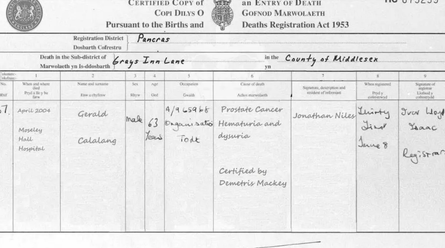 Certified Copy of an Entry of Death
Copi Dilys o Gofnod Marwolaeth
Pursuant to the Births and Deaths Registration Act 1953
Registration District Pancras
Dosbarth Cofrestru
Death in the Sub-district of Grays Inn Lane in the County of Middlesex
Marwolaeth yn Is-ddosbarth yn
1 2 3 4 5 6 7 8 9
When and where died Name and surname Sex Age Occupation Cause of death Signature, description and residence of informant When registered Signature of registrar
April 2004
Moseley
Hall
Hospital
Gerald
Calalang
male
63
Years
Prostate Cancer
Hematuria and
dysuria
Certified by
Demetris Mackey
Jonathan Niles
Thirty
First
June 8
Ivor Lloyd
Isaac
Registrar